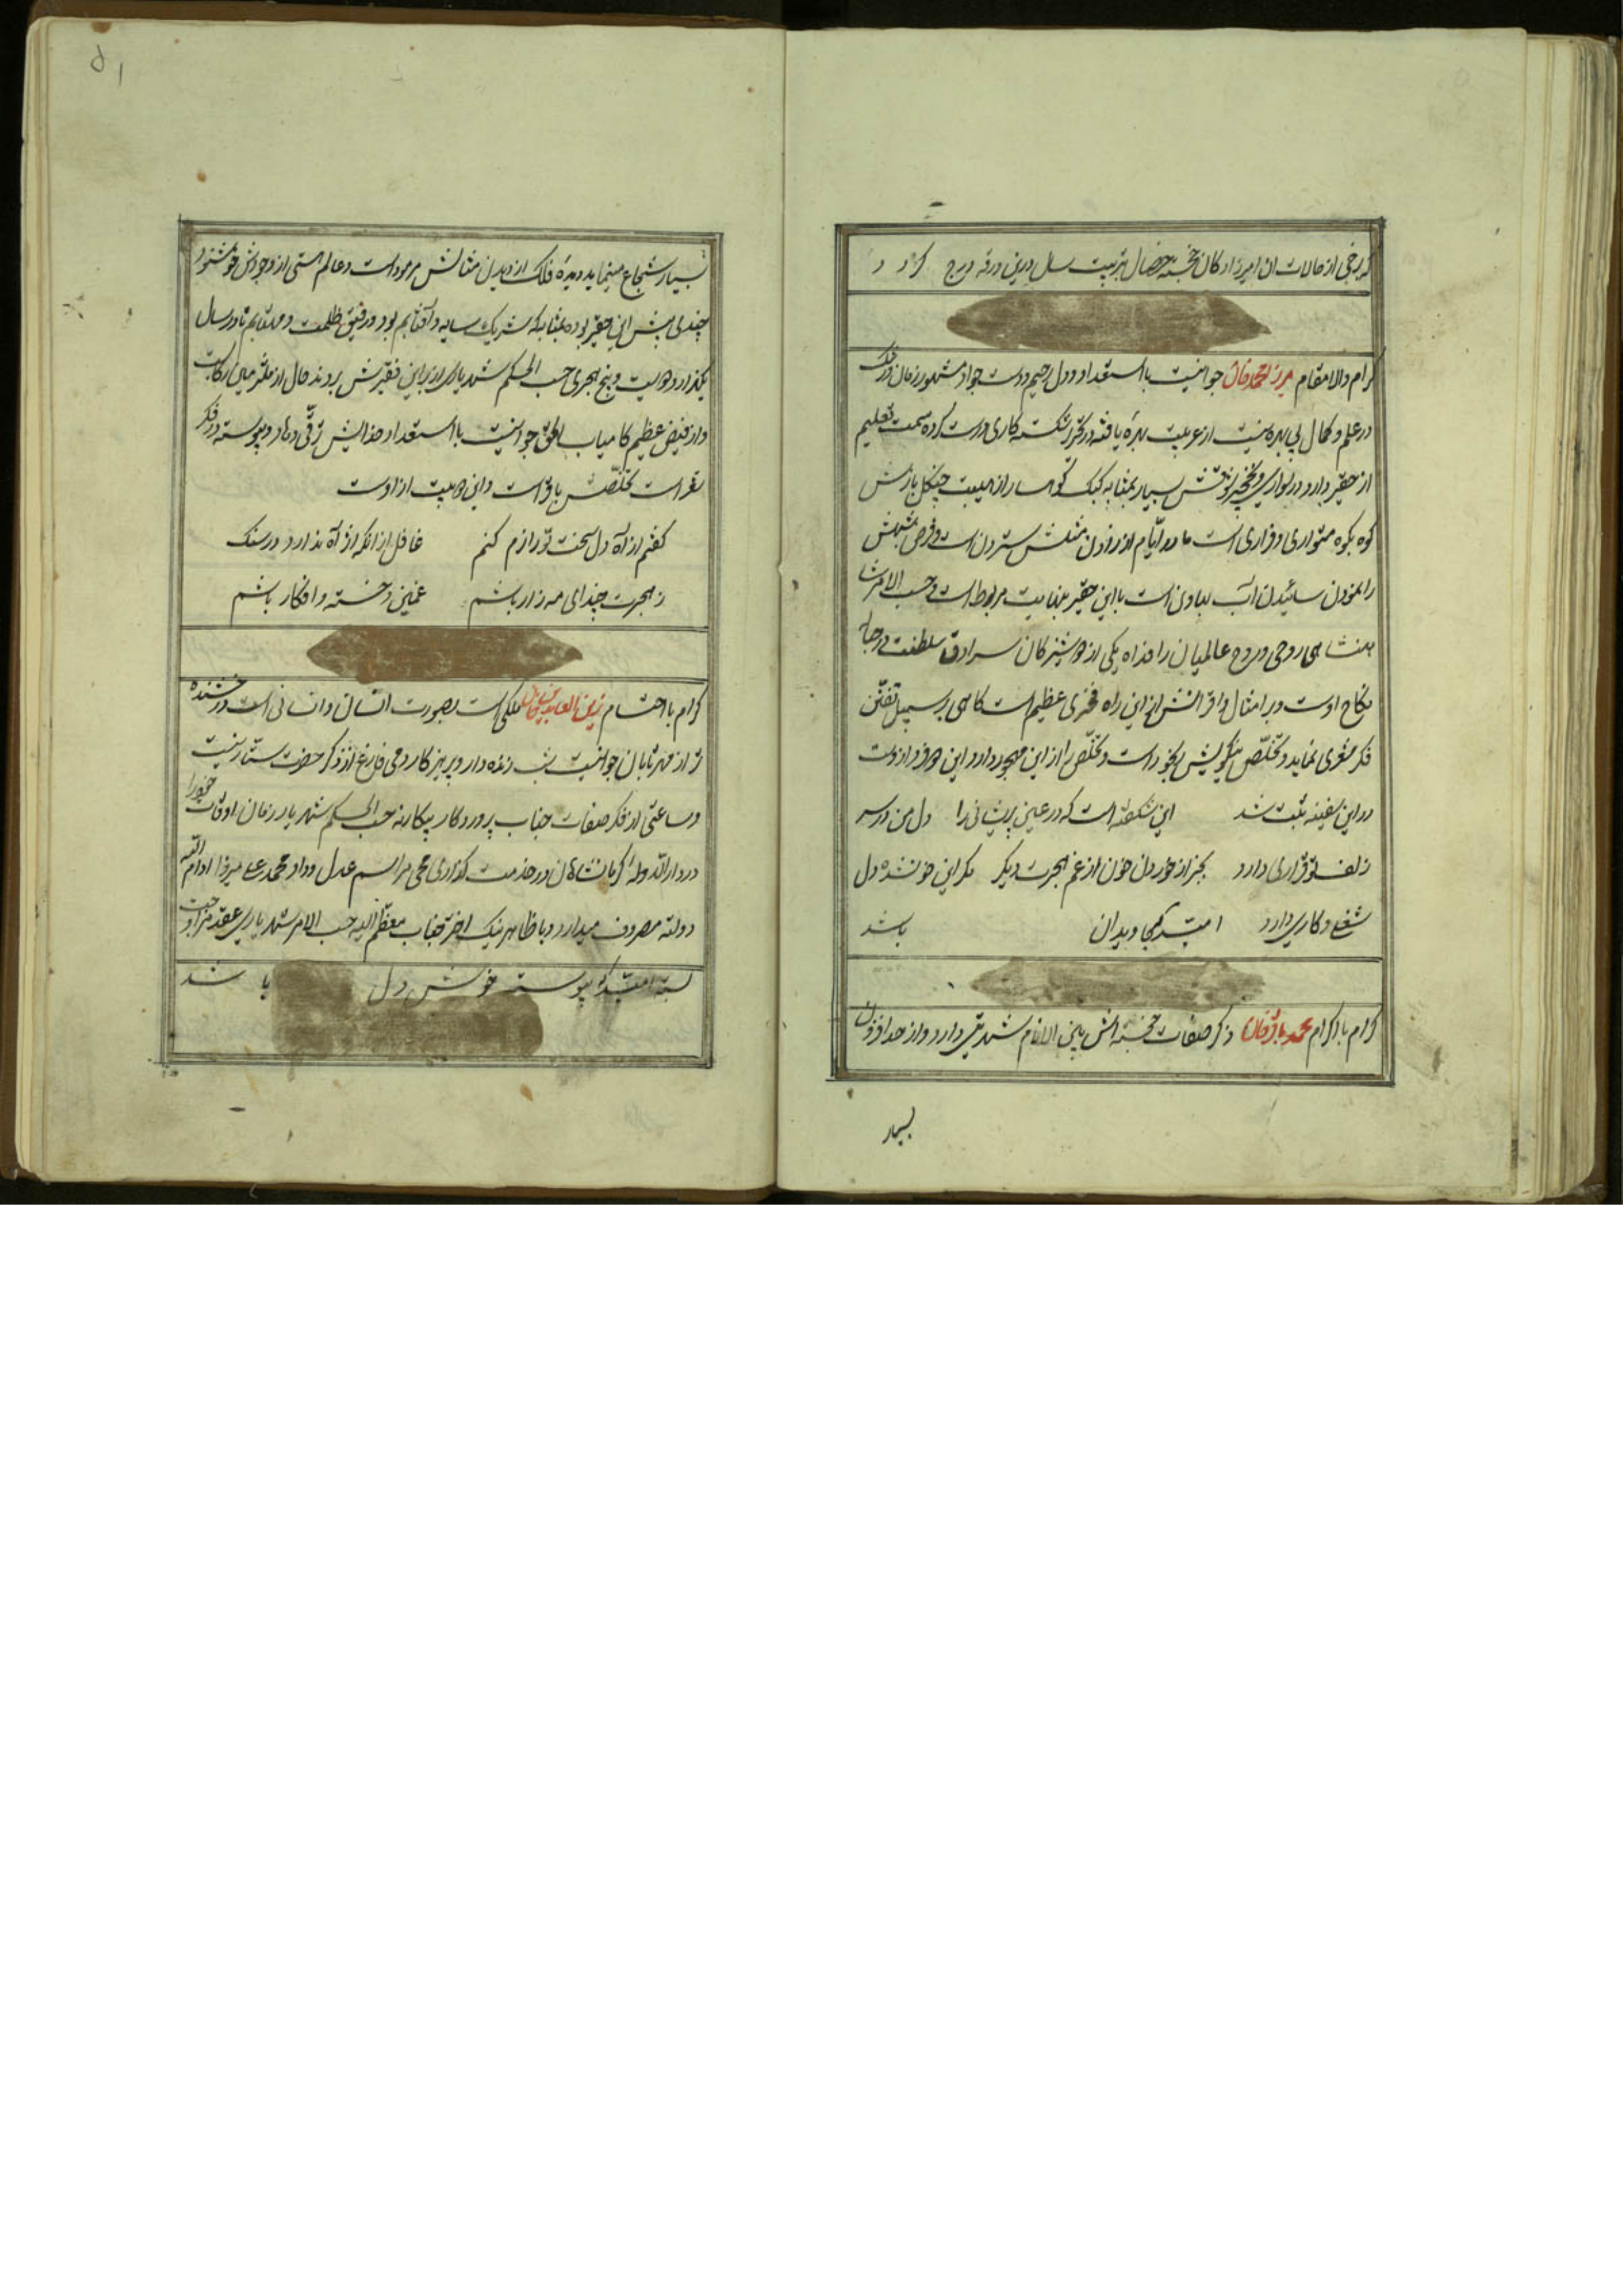 که برخی از حالات ان امیرزادکان خجسته خصال بترتیب سال درین ورقه درج کردد
کرام والامقام میرزا محمد خان جوانیست بااستعداد و دل رحیم و دست جواد مشهور زمان
در علم و کمال بی بهره نیست از عربیت بهرهٔ یافته در تحریر شکسته کاری درست کرده سمت تعلیم
از حقیر دارد در سواری و نخچیر بسیار بمثابه کبک کوهسار از هیبت چنکل بازش
کوه بکوه متواری و فراری است مادر ایّام از زادن مثلش سترون است و قرص
را نمودن سائیدن آب بهاون است بااین حقیر بنهایت مربوط است و حسب الامر
روحی و روح عالمیان را فداه یکی از دوشیزکان سرادق سلطنت در
نکاح اوست و بر امثال و اقرانش از این راه فخری عظیم است کاهی بر سبیل تفنّن
فکر شعری نماید و تخلّص
در این سفینه ثبت شد این شکفته است که در عین پریشانی را دل من در سر
زلف تو قراری دارد بجز از خوردن خون از غم هجرت دیکر مکر این خون شده دل
شغلی و کاری دارد امید که جاویدان باشد
کرام بااکرام محمد باقر خان ذکر صفات خجسته اش بین الانام شهرتی دارد و از حد افزون
بسیار
۵۱
بسیار شجاع مینماید دیدهٔ فلک از دیدن مثالش مرمود است و عالم هستی از وجودش خوشنود
چندی پیش این حقیر بوده بمثابه که شریک سایه و آفتابم بود و رفیق ظلمت و مهتابم تا در سال
یکهزار و دویست و پنج هجری حسب الحکم شهریاری از بر این فقیرش بردند حال از ملتزمین رکابست
و از فیض عظیم کامیاب الحق جوانیست بااستعداد خدایش ترقّی دهاد و پیوسته در فکر
شعر است تخلّصش باقر است و این دو بیت از اوست
کفتم از آه دل سخت تو را نرم کنم غافل از انکه اثر آه ندارد در سنک
ز هجرت چند ای مه زار باشم غمین و خسته و افکار باشم
کرام بااحتشام زین العابدین خان ملکی است بصورت انسان و انسانی است درخشنده
تر از مهر تابان جوانیست شب زنده دار و پرهیزکار دمی فارغ از ذکر حضرت ستار نیست
و ساعتی از فکر صفات جناب پروردکار بیکار نه حسب الحکم شهریار زمان اوقات خود را
در دار الدوله کرمانشاهان در خدمت کذاری محیی مراسم عدل و داد محمد علی میرزا ادام الله
دولته مصروف میدارد و باظاهر نیک اختر جناب معظّم الیه حسب الامر شهریاری عقد مزاوجت
بسته امید که پیوسته خوش دل باشد